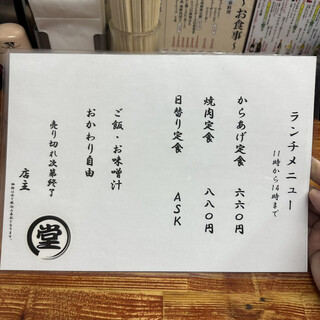 ランチメニュー
11時から14時まで
からあげ定食 六六〇円
焼肉定食 八八〇円
日替り定食 ASK
ご飯・お味噌汁
おかわり自由
売り切れ次第終了
店主
堂
〜お食事〜